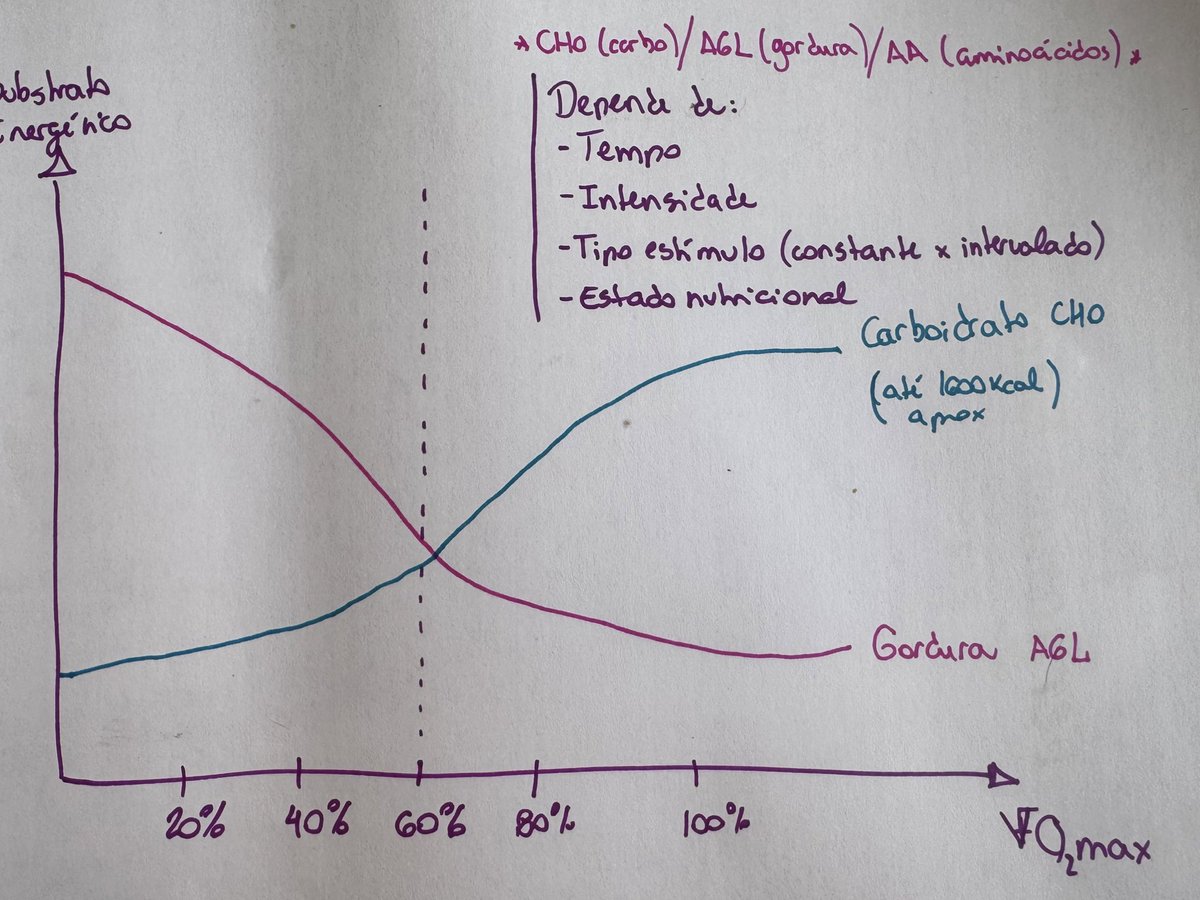 * CHO (carbo) / AGL (gordura) / AA (aminoácidos) *
Substrato
Energético
Depende de:
- Tempo
- Intensidade
- Tipo estímulo (constante x intervalado)
- Estado nutricional
Carboidrato CHO
(até 1600 Kcal)
aprox
Gordura AGL
20% 40% 60% 80% 100%
VO₂max